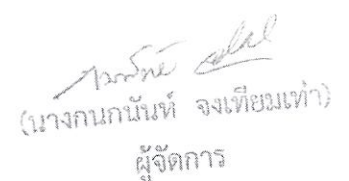 (นางกนกนันท์ จงเทียมเท่า)
ผู้จัดการ